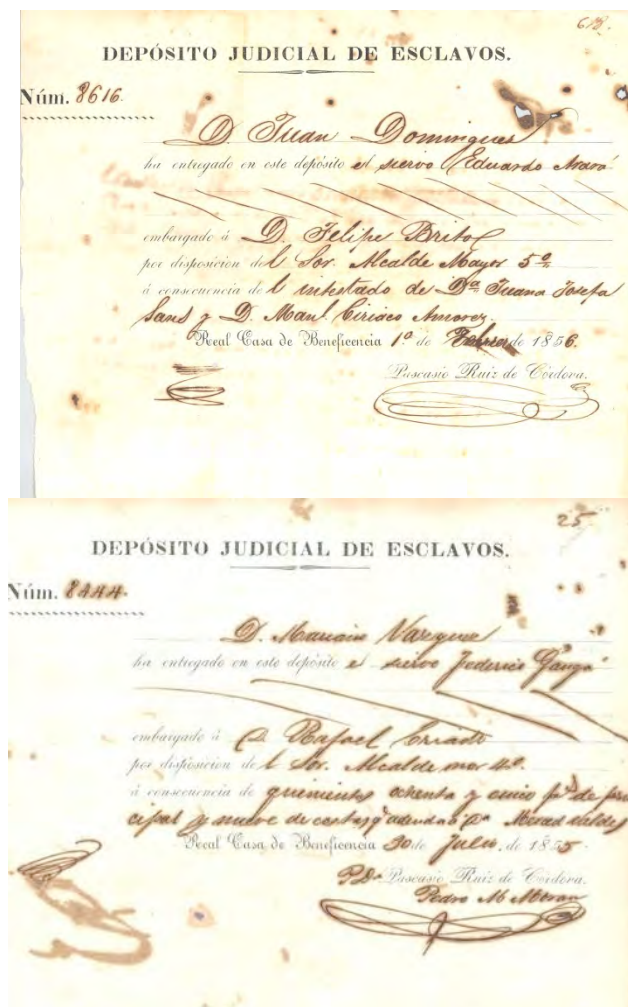 618.
DEPÓSITO JUDICIAL DE ESCLAVOS.
Núm. 8616.
D. Juan Domingues
ha entregado en este depósito el siervo Eduardo
embargado á D. Felipe Brito
por disposicion del Sor. Alcalde Mayor 5º
á consecuencia del intestado de Dª Juana Josefa
Sans y D. Manl. Ciriaco
Real Casa de Beneficencia 1º de de 1856.
Pascasio Ruiz de Córdova.
25
DEPÓSITO JUDICIAL DE ESCLAVOS.
Núm. 8444.
D.
ha entregado en este depósito el siervo Federico Gangá
embargado á D. Rafael Criado
por disposicion del Sor. Alcalde mor 4º.
á consecuencia de quinientos ochenta y cinco ps de prin
cipal y nueve de costas q adeuda á Dª
Real Casa de Beneficencia 30 de Julio. de 1855.
Pascasio Ruiz de Córdova.
Pedro M Moran